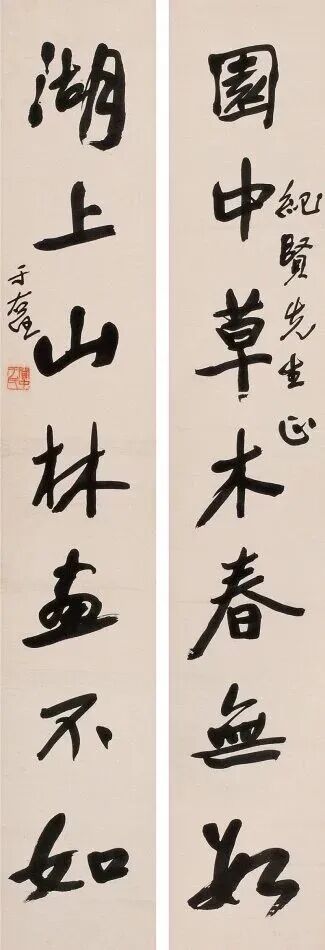 紀賢先生正
園中草木春無數
湖上山林畫不如
于右任